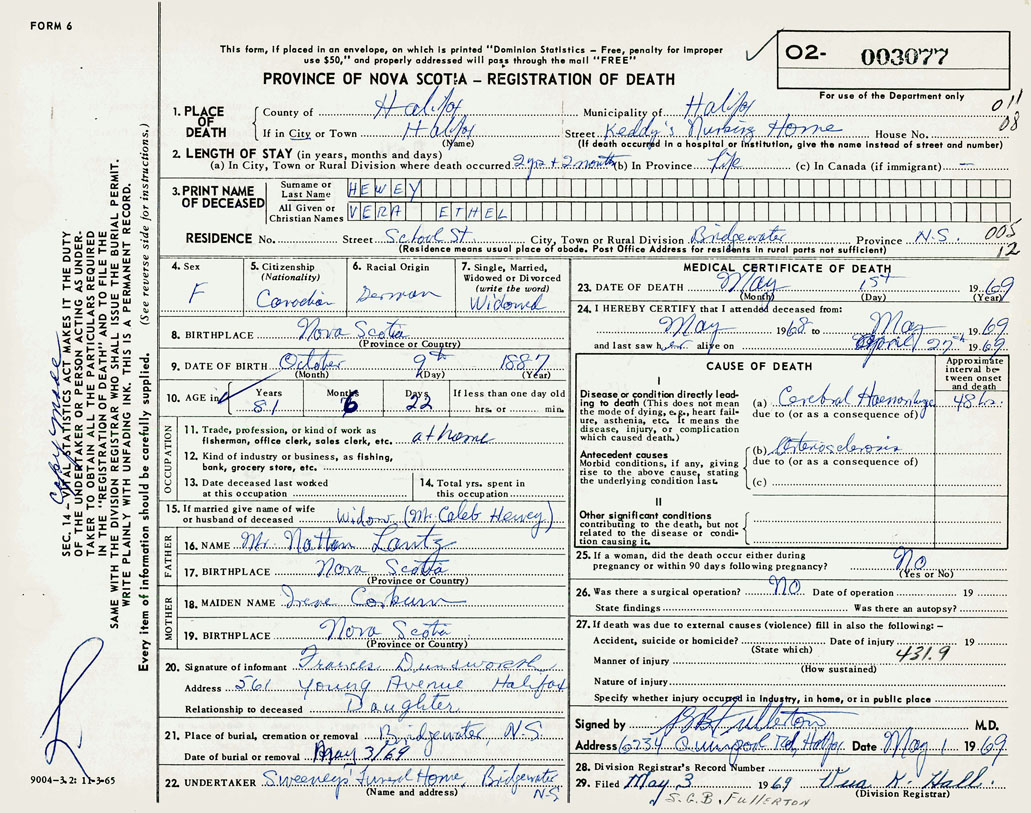 FORM 6
This form, if placed in an envelope, on which is printed "Dominion Statistics – Free, penalty for improper
use $50," and properly addressed will pass through the mail "FREE"
PROVINCE OF NOVA SCOTIA – REGISTRATION OF DEATH
O2- 003077
For use of the Department only
011
08
1. PLACE OF DEATH
County of Halifax Municipality of Halifax
If in City or Town Halifax Street Keddy's Nursing Home House No.
(Name) (If death occurred in a hospital or institution, give the name instead of street and number)
2. LENGTH OF STAY (in years, months and days)
(a) In City, Town or Rural Division where death occurred 2 yrs + 2 months (b) In Province Life (c) In Canada (if immigrant) —
3. PRINT NAME OF DECEASED
Surname or Last Name HEWEY
All Given or Christian Names VERA ETHEL
RESIDENCE No. Street School St. City, Town or Rural Division Bridgewater Province N.S. 005
(Residence means usual place of abode. Post Office Address for residents in rural parts not sufficient) 12
4. Sex
F
5. Citizenship
(Nationality)
Canadian
6. Racial Origin
German
7. Single, Married,
Widowed or Divorced
(write the word)
Widowed
8. BIRTHPLACE Nova Scotia
(Province or Country)
9. DATE OF BIRTH October 9th 1887
(Month) (Day) (Year)
10. AGE in Years Months Days If less than one day old
81 6 22 hrs. or min.
OCCUPATION
11. Trade, profession, or kind of work as
fisherman, office clerk, sales clerk, etc. at home
12. Kind of industry or business, as fishing,
bank, grocery store, etc.
13. Date deceased last worked
at this occupation
14. Total yrs. spent in
this occupation
15. If married give name of wife
or husband of deceased Widow (Mr. Caleb Hewey)
FATHER
16. NAME Mr. Nattan Lantz
17. BIRTHPLACE Nova Scotia
(Province or Country)
MOTHER
18. MAIDEN NAME Irene
19. BIRTHPLACE Nova Scotia
(Province or Country)
20. Signature of informant Frances Dunsworth
Address 561 Young Avenue Halifax
Relationship to deceased Daughter.
21. Place of burial, cremation or removal Bridgewater, N.S.
Date of burial or removal May 3/69
22. UNDERTAKER Sweeneys' Funeral Home, Bridgewater
(Name and address) N.S.
MEDICAL CERTIFICATE OF DEATH
23. DATE OF DEATH May 1st 1969
(Month) (Day) (Year)
24. I HEREBY CERTIFY that I attended deceased from:
May 1968 to May 1969
and last saw her alive on April 27th 1969
CAUSE OF DEATH
Approximate interval between onset and death
I
Disease or condition directly leading
to death (This does not mean
the mode of dying, e.g., heart failure,
asthenia, etc. It means the
disease, injury, or complication
which caused death.)
(a) Cerebral Haemorrhage 48 hrs.
due to (or as a consequence of)
Antecedent causes
Morbid conditions, if any, giving
rise to the above cause, stating
the underlying condition last.
(b) Arteriosclerosis
due to (or as a consequence of)
(c)
II
Other significant conditions
contributing to the death, but not
related to the disease or condition
causing it.
25. If a woman, did the death occur either during
pregnancy or within 90 days following pregnancy? No
(Yes or No)
26. Was there a surgical operation? NO Date of operation 19
State findings Was there an autopsy?
27. If death was due to external causes (violence) fill in also the following: –
Accident, suicide or homicide? Date of injury 19
(State which) 431.9
Manner of injury
(How sustained)
Nature of injury
Specify whether injury occurred in industry, in home, or in public place
Signed by SGB Fullerton M.D.
Address 6234 Quinpool Rd, Halifax Date May 1 1969
28. Division Registrar's Record Number
29. Filed May 3 1969 K. Hall
(Division Registrar)
S.G.B. FULLERTON
Copy made
SEC. 14 – VITAL STATISTICS ACT MAKES IT THE DUTY
OF THE UNDERTAKER OR PERSON ACTING AS UNDER-
TAKER TO OBTAIN ALL THE PARTICULARS REQUIRED
IN THE "REGISTRATION OF DEATH" AND TO FILE THE
SAME WITH THE DIVISION REGISTRAR WHO SHALL ISSUE THE BURIAL PERMIT.
WRITE PLAINLY WITH UNFADING INK. THIS IS A PERMANENT RECORD.
Every item of information should be carefully supplied. (See reverse side for instructions.)
9004–3.2: 11-3-65